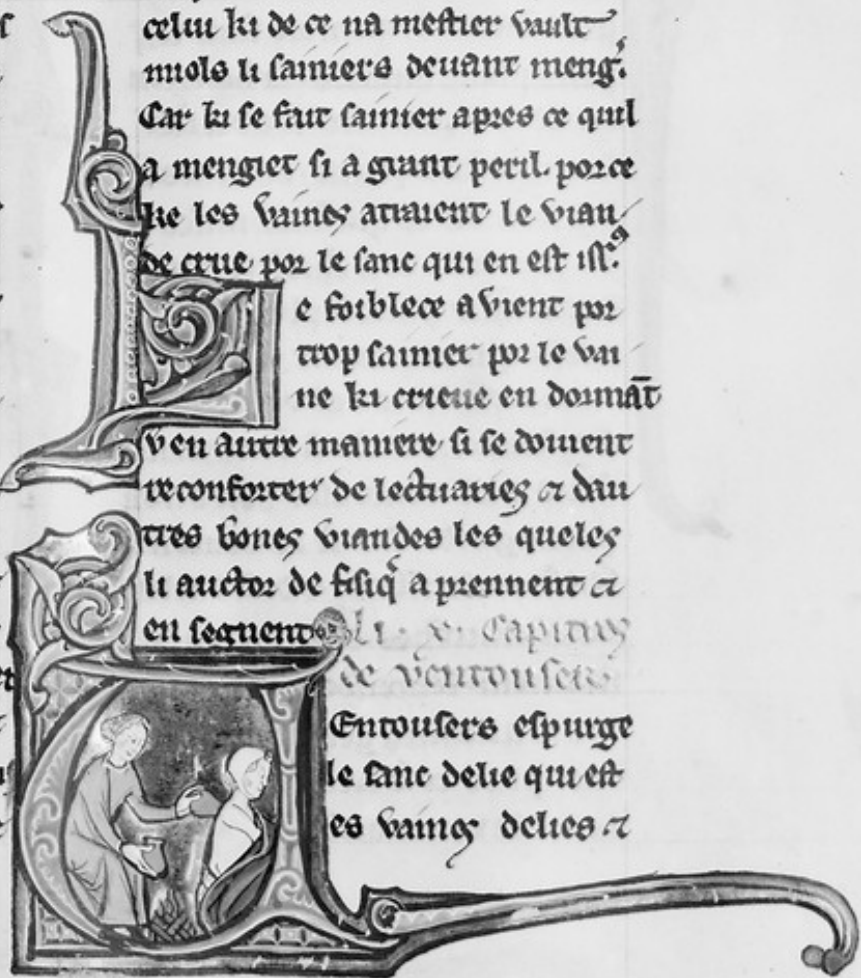 celui ki de ce na mestier vault
miols li sainiers deuant meng'.
Car ki se fait sainier apres ce quil
a mengiet si a grant peril. por ce
ke les vaines atraient le vian
de crue por le sanc qui en est ist'.
Se foiblece a vient por
trop sainier por le vai
ne ki crieue en dormāt
v en autre maniere si se doiuent
reconforter de lectuaries ⁊ dau
tres bones viandes les queles
li auctor de fisiq̄ aprennent ⁊
en segnent li . x . Capitres
de ventouser.
VEntousers espurge
le sanc delie qui est
es vaines delies ⁊